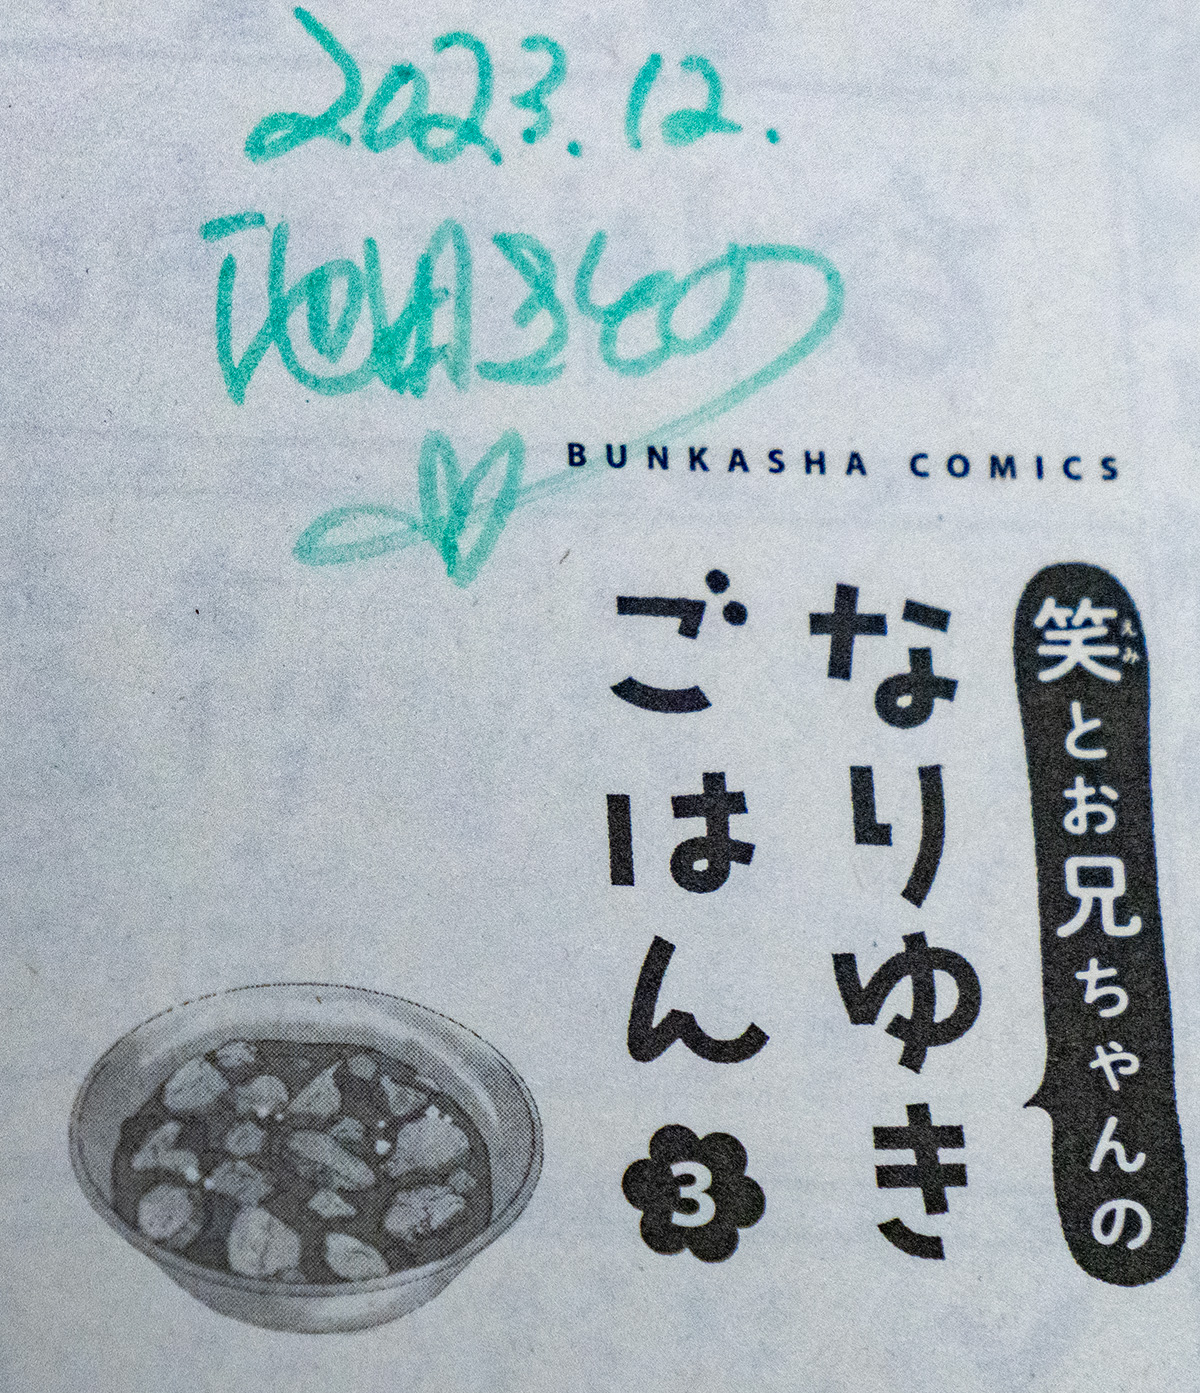 2023.12.
BUNKASHA COMICS
笑とお兄ちゃんの
えみ
なりゆき
ごはん
3